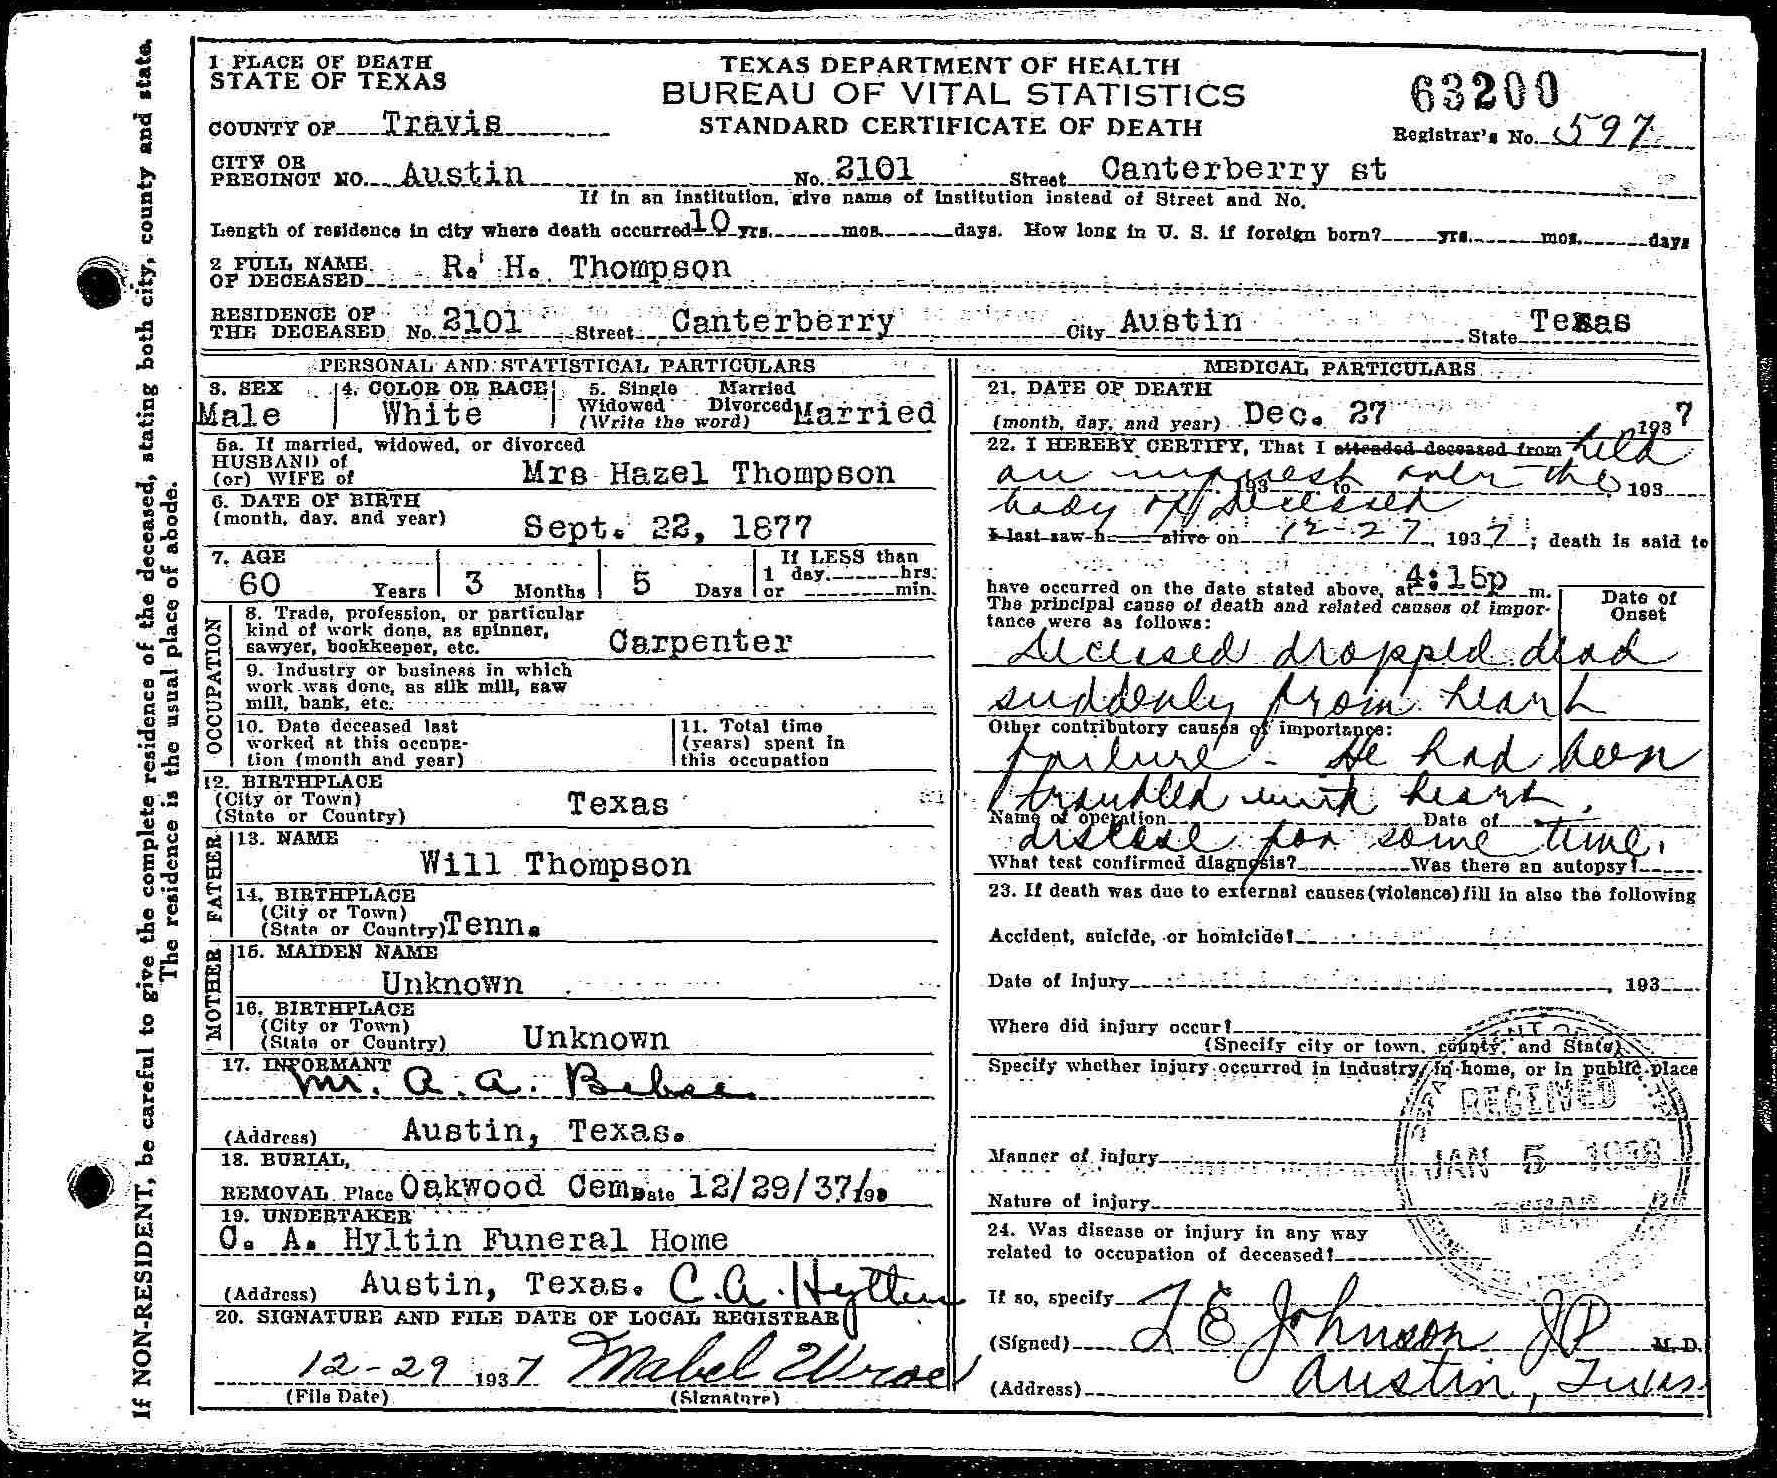 If NON-RESIDENT, be careful to give the complete residence of the deceased, stating both city, county and state.
The residence is the usual place of abode.
1 PLACE OF DEATH
STATE OF TEXAS
COUNTY OF Travis
TEXAS DEPARTMENT OF HEALTH
BUREAU OF VITAL STATISTICS
STANDARD CERTIFICATE OF DEATH
63200
Registrar's No. 597
CITY OR
PRECINCT NO. Austin No. 2101 Street Canterberry st
If in an institution, give name of institution instead of Street and No.
Length of residence in city where death occurred 10 yrs. mos. days. How long in U. S. if foreign born? yrs. mos. days
2 FULL NAME
OF DECEASED R. H. Thompson
RESIDENCE OF
THE DECEASED No. 2101 Street Canterberry City Austin State Texas
PERSONAL AND STATISTICAL PARTICULARS
3. SEX
Male
4. COLOR OR RACE
White
5. Single Married
Widowed Divorced
(Write the word) Married
5a. If married, widowed, or divorced
HUSBAND of
(or) WIFE of Mrs Hazel Thompson
6. DATE OF BIRTH
(month, day, and year) Sept. 22, 1877
7. AGE
60 Years 3 Months 5 Days
If LESS than
1 day, hrs.
or min.
OCCUPATION
8. Trade, profession, or particular
kind of work done, as spinner,
sawyer, bookkeeper, etc. Carpenter
9. Industry or business in which
work was done, as silk mill, saw
mill, bank, etc.
10. Date deceased last
worked at this occupa-
tion (month and year)
11. Total time
(years) spent in
this occupation
12. BIRTHPLACE
(City or Town)
(State or Country) Texas
FATHER
13. NAME
Will Thompson
14. BIRTHPLACE
(City or Town)
(State or Country) Tenn.
MOTHER
15. MAIDEN NAME
Unknown
16. BIRTHPLACE
(City or Town)
(State or Country) Unknown
17. INFORMANT
Mr. A. A. Bebee
(Address) Austin, Texas.
18. BURIAL,
REMOVAL Place Oakwood Cem Date 12/29/37/193
19. UNDERTAKER
C. A. Hyltin Funeral Home
(Address) Austin, Texas. C.A. Hyltin
20. SIGNATURE AND FILE DATE OF LOCAL REGISTRAR
12-29 1937 Mabel Wroe
(File Date) (Signature)
MEDICAL PARTICULARS
21. DATE OF DEATH
(month, day, and year) Dec. 27 1937
22. I HEREBY CERTIFY, That I attended deceased from held
an inquest over the
193 to 193
body of deceased
I last saw h alive on 12-27 1937; death is said to
have occurred on the date stated above, at 4:15p m.
The principal cause of death and related causes of impor-
tance were as follows:
Date of
Onset
Deceased dropped dead
suddenly from heart
Other contributory causes of importance:
failure - He had been
troubled with heart
Name of operation Date of
disease for some time.
What test confirmed diagnosis? Was there an autopsy?
23. If death was due to external causes (violence) fill in also the following
Accident, suicide, or homicide?
Date of injury 193
Where did injury occur?
(Specify city or town, county, and State)
Specify whether injury occurred in industry, in home, or in public place
Manner of injury
Nature of injury
RECEIVED
JAN 5 1938
24. Was disease or injury in any way
related to occupation of deceased?
If so, specify
(Signed) T E Johnson JP M. D.
(Address) Austin, Texas